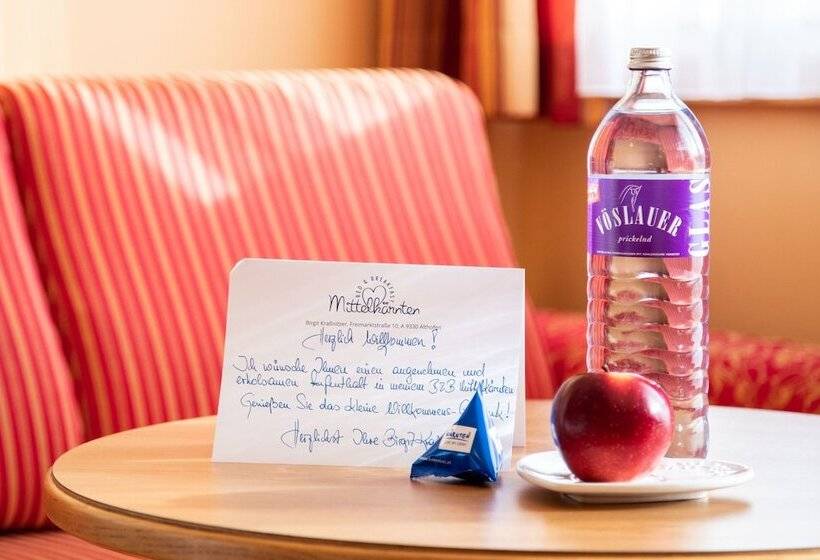 BED & BREAKFAST
Mittelkärnten
Birgit Kraßnitzer, Freimarktstraße 10, A 9330 Althofen
Herzlich Willkommen!
Ich wünsche Ihnen einen angenehmen und
erholsamen Aufenthalt in meinem B&B Mittelkärnten
Genießen Sie das kleine Willkommens-
Herzlichst Ihre Birgit
KÄRNTEN
VÖSLAUER
prickelnd
GLAS